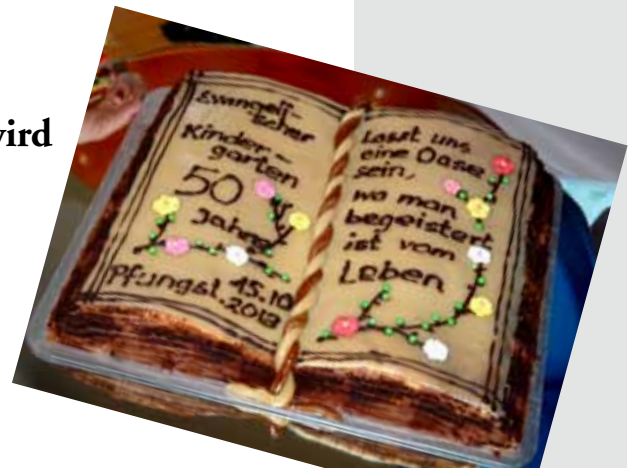 wird
Evangeli-
scher
Kinder-
garten
50
Jahre
Pfungst. 15.10
.2013
Lasst uns
eine Oase
sein,
wo man
begeistert
ist vom
Leben